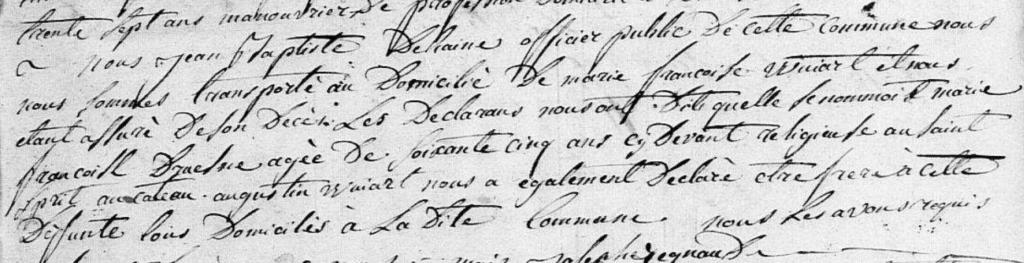 trente sept ans manouvrier de profession
nous Jean Baptiste Dehaine officier public de cette commune nous
nous sommes transporté au Domicilié De marie francoise Wuiart et nous
etant assuré De son Décès. Les Declarans nous ont Dit quelle se nommoit marie
francoise agée De soixante cinq ans cy Devant religieuse au saint
Esprit au cateau. augustin Wuiart nous a également Declaré etre frere à cette
Défunte tous Domiciliés à La Dite Commune. nous Les avons requis